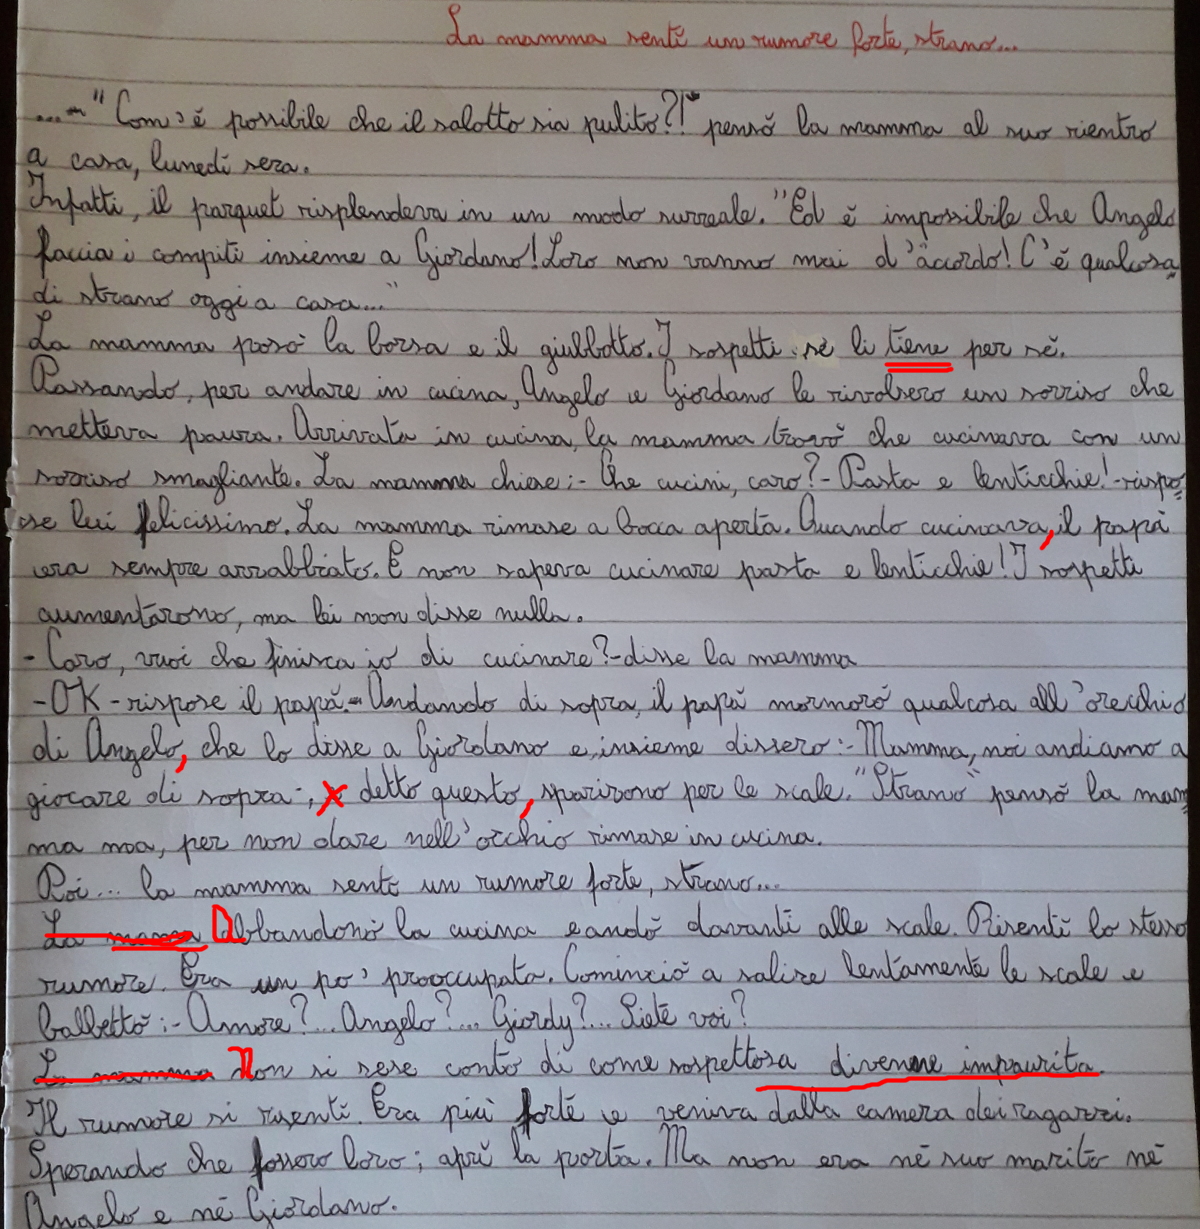 La mamma sentì un rumore forte, strano...
...-"Com'è possibile che il salotto sia pulito?!" pensò la mamma al suo rientro
a casa, lunedì sera.
Infatti, il parquet risplendeva in un modo surreale. "Ed è impossibile che Angelo
faccia i compiti insieme a Giordano! Loro non vanno mai d'accordo! C'è qualcosa
di strano oggi a casa..."
La mamma posò la borsa e il giubbotto. I sospetti se li tiene per sé.
Passando, per andare in cucina, Angelo e Giordano le rivolsero un sorriso che
metteva paura. Arrivata in cucina, la mamma trovò che cucinava con un
sorriso smagliante. La mamma chiese:- Che cucini, caro?- Pasta e lenticchie!-rispo
se lui felicissimo. La mamma rimase a bocca aperta. Quando cucinava, il papà
era sempre arrabbiato. E non sapeva cucinare pasta e lenticchie! I sospetti
aumentarono, ma lei non disse nulla.
- Caro, vuoi che finisca io di cucinare?-disse la mamma
-OK-rispose il papà.-Andando di sopra, il papà mormorò qualcosa all'orecchio
di Angelo, che lo disse a Giordano e, insieme dissero:- Mamma, noi andiamo a
giocare di sopra-, x detto questo, sparirono per le scale. "Strano" pensò la mam
ma ma, per non dare nell'occhio rimase in cucina.
Poi... la mamma sentì un rumore forte, strano...
La mamma Abbandonò la cucina e andò davanti alle scale. Risentì lo stesso
rumore. Era un po' preoccupata. Cominciò a salire lentamente le scale e
balbettò:- Amore?... Angelo?... Giordy?... Siete voi?
La mamma Non si rese conto di come sospettosa divenne impaurita.
Il rumore si risentì. Era più forte e veniva dalla camera dei ragazzi.
Sperando che fossero loro; aprì la porta. Ma non era né suo marito né
Angelo e né Giordano.